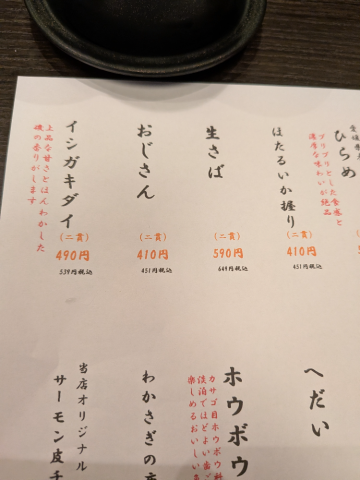 愛媛県産
ひらめ
プリプリとした食感と
濃厚な味わいが絶品
ほたるいか握り
(二貫)
410円
451円税込
生さば
(二貫)
590円
649円税込
おじさん
(二貫)
410円
451円税込
イシガキダイ
上品な甘さとほんわかした
磯の香りがします
(二貫)
490円
539円税込
へだい
ホウボウ
カサゴ目ホウボウ科
淡泊ではどよい歯ご
楽しめるおいしい魚
わかさぎの
当店オリジナル
サーモン皮チ